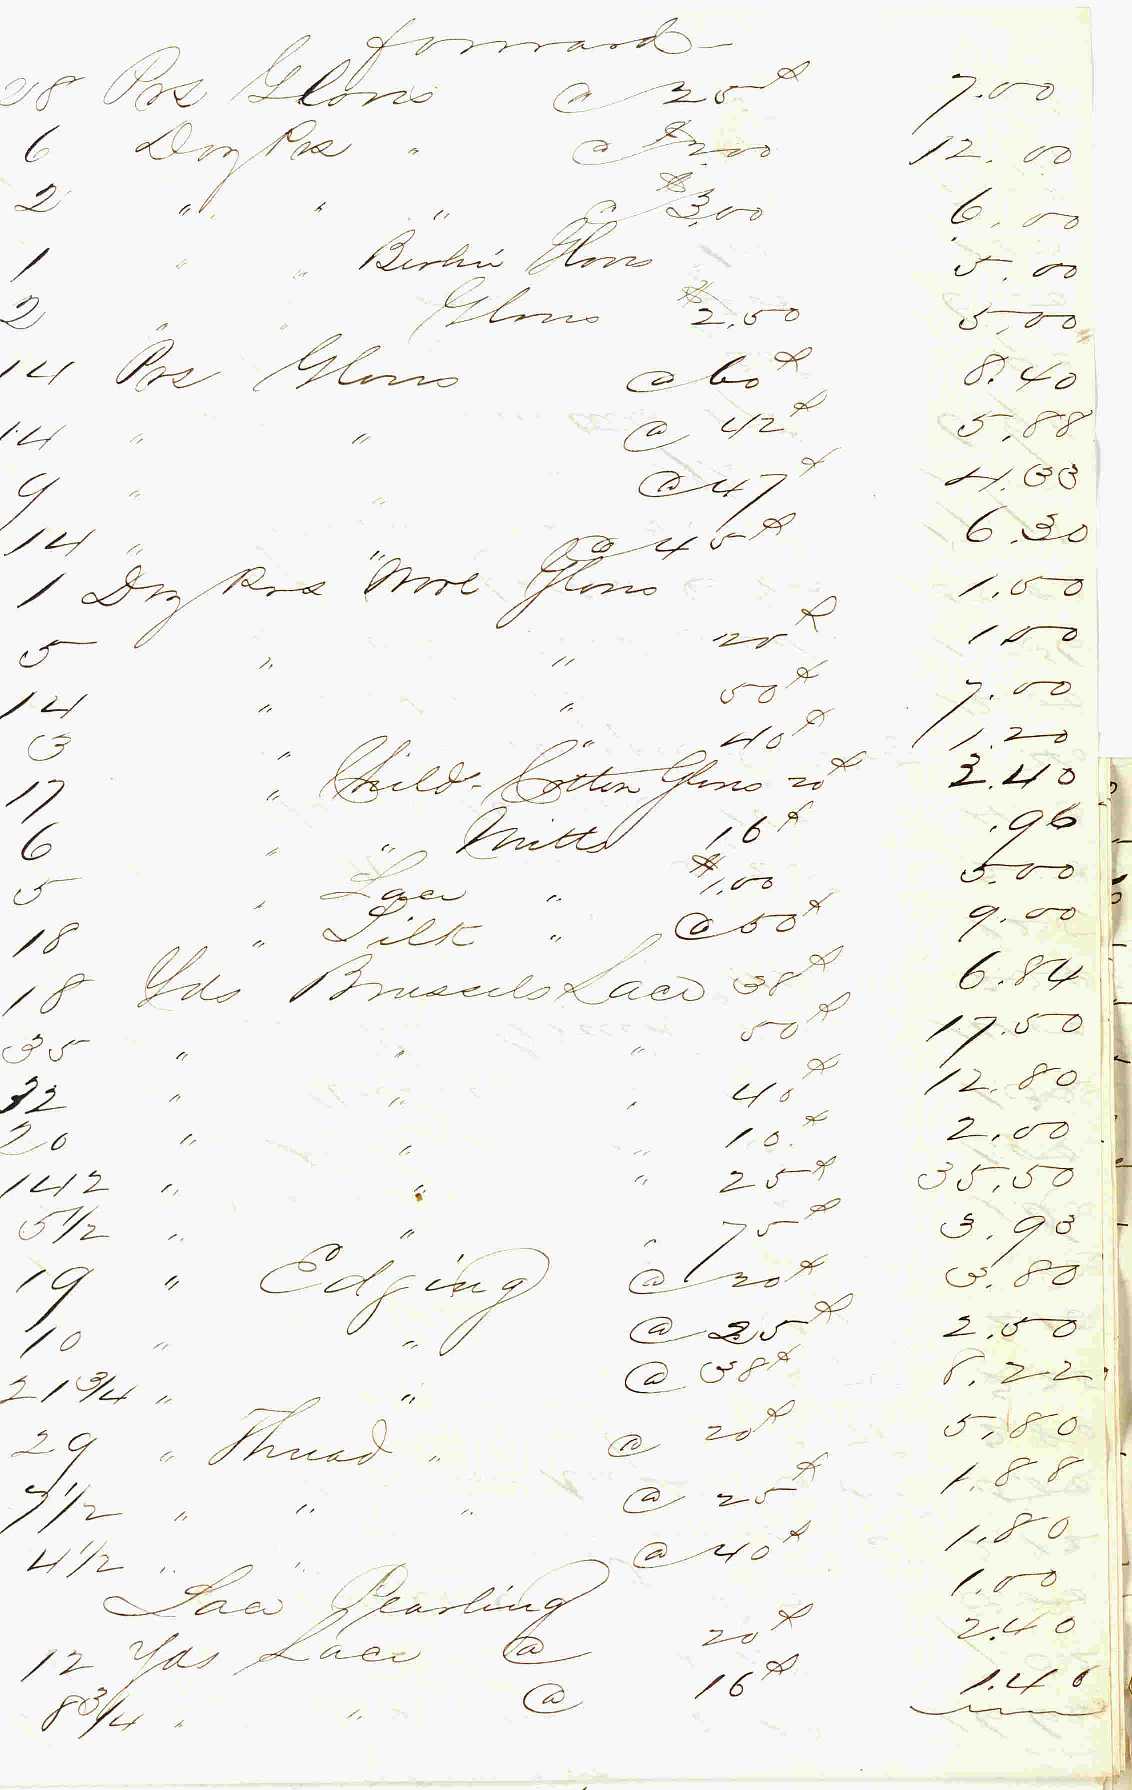 forward
28 Prs Gloves @ 25¢ 7.00
6 Doz Prs " @ $2.00 12.00
2 " " " @ $3.00 6.00
1 " " Berlin Gloves 5.00
2 " " Gloves $2.50 5.00
14 Prs Gloves @ 60¢ 8.40
14 " " @ 42¢ 5.88
9 " " @ 47¢ 4.33
14 " " @ 45¢ 6.30
1 Doz Prs Wove Gloves 1.50
5 " " 20¢ 1.00
14 " " 50¢ 7.00
3 " " 40¢ 1.20
17 " Child. Cotton Gloves 20¢ 3.40
6 " " Mitts 16¢ .96
5 " Lace " $1.00 5.00
18 " Silk " @ 50¢ 9.00
18 Yds Brussels Lace 38¢ 6.84
35 " " " 50¢ 17.50
32 " " " 40¢ 12.80
20 " " " 10¢ 2.00
142 " " " 25¢ 35.50
5 1/2 " " " 75¢ 3.93
19 " Edging @ 20¢ 3.80
10 " " @ 25¢ 2.50
21 3/4 " " @ 38¢ 8.22
29 " Thread " @ 20¢ 5.80
7 1/2 " " " @ 25¢ 1.88
4 1/2 " " @ 40¢ 1.80
Lace Pearling 1.00
12 Yds Lace @ 20¢ 2.40
8 3/4 " " @ 16¢ 1.46